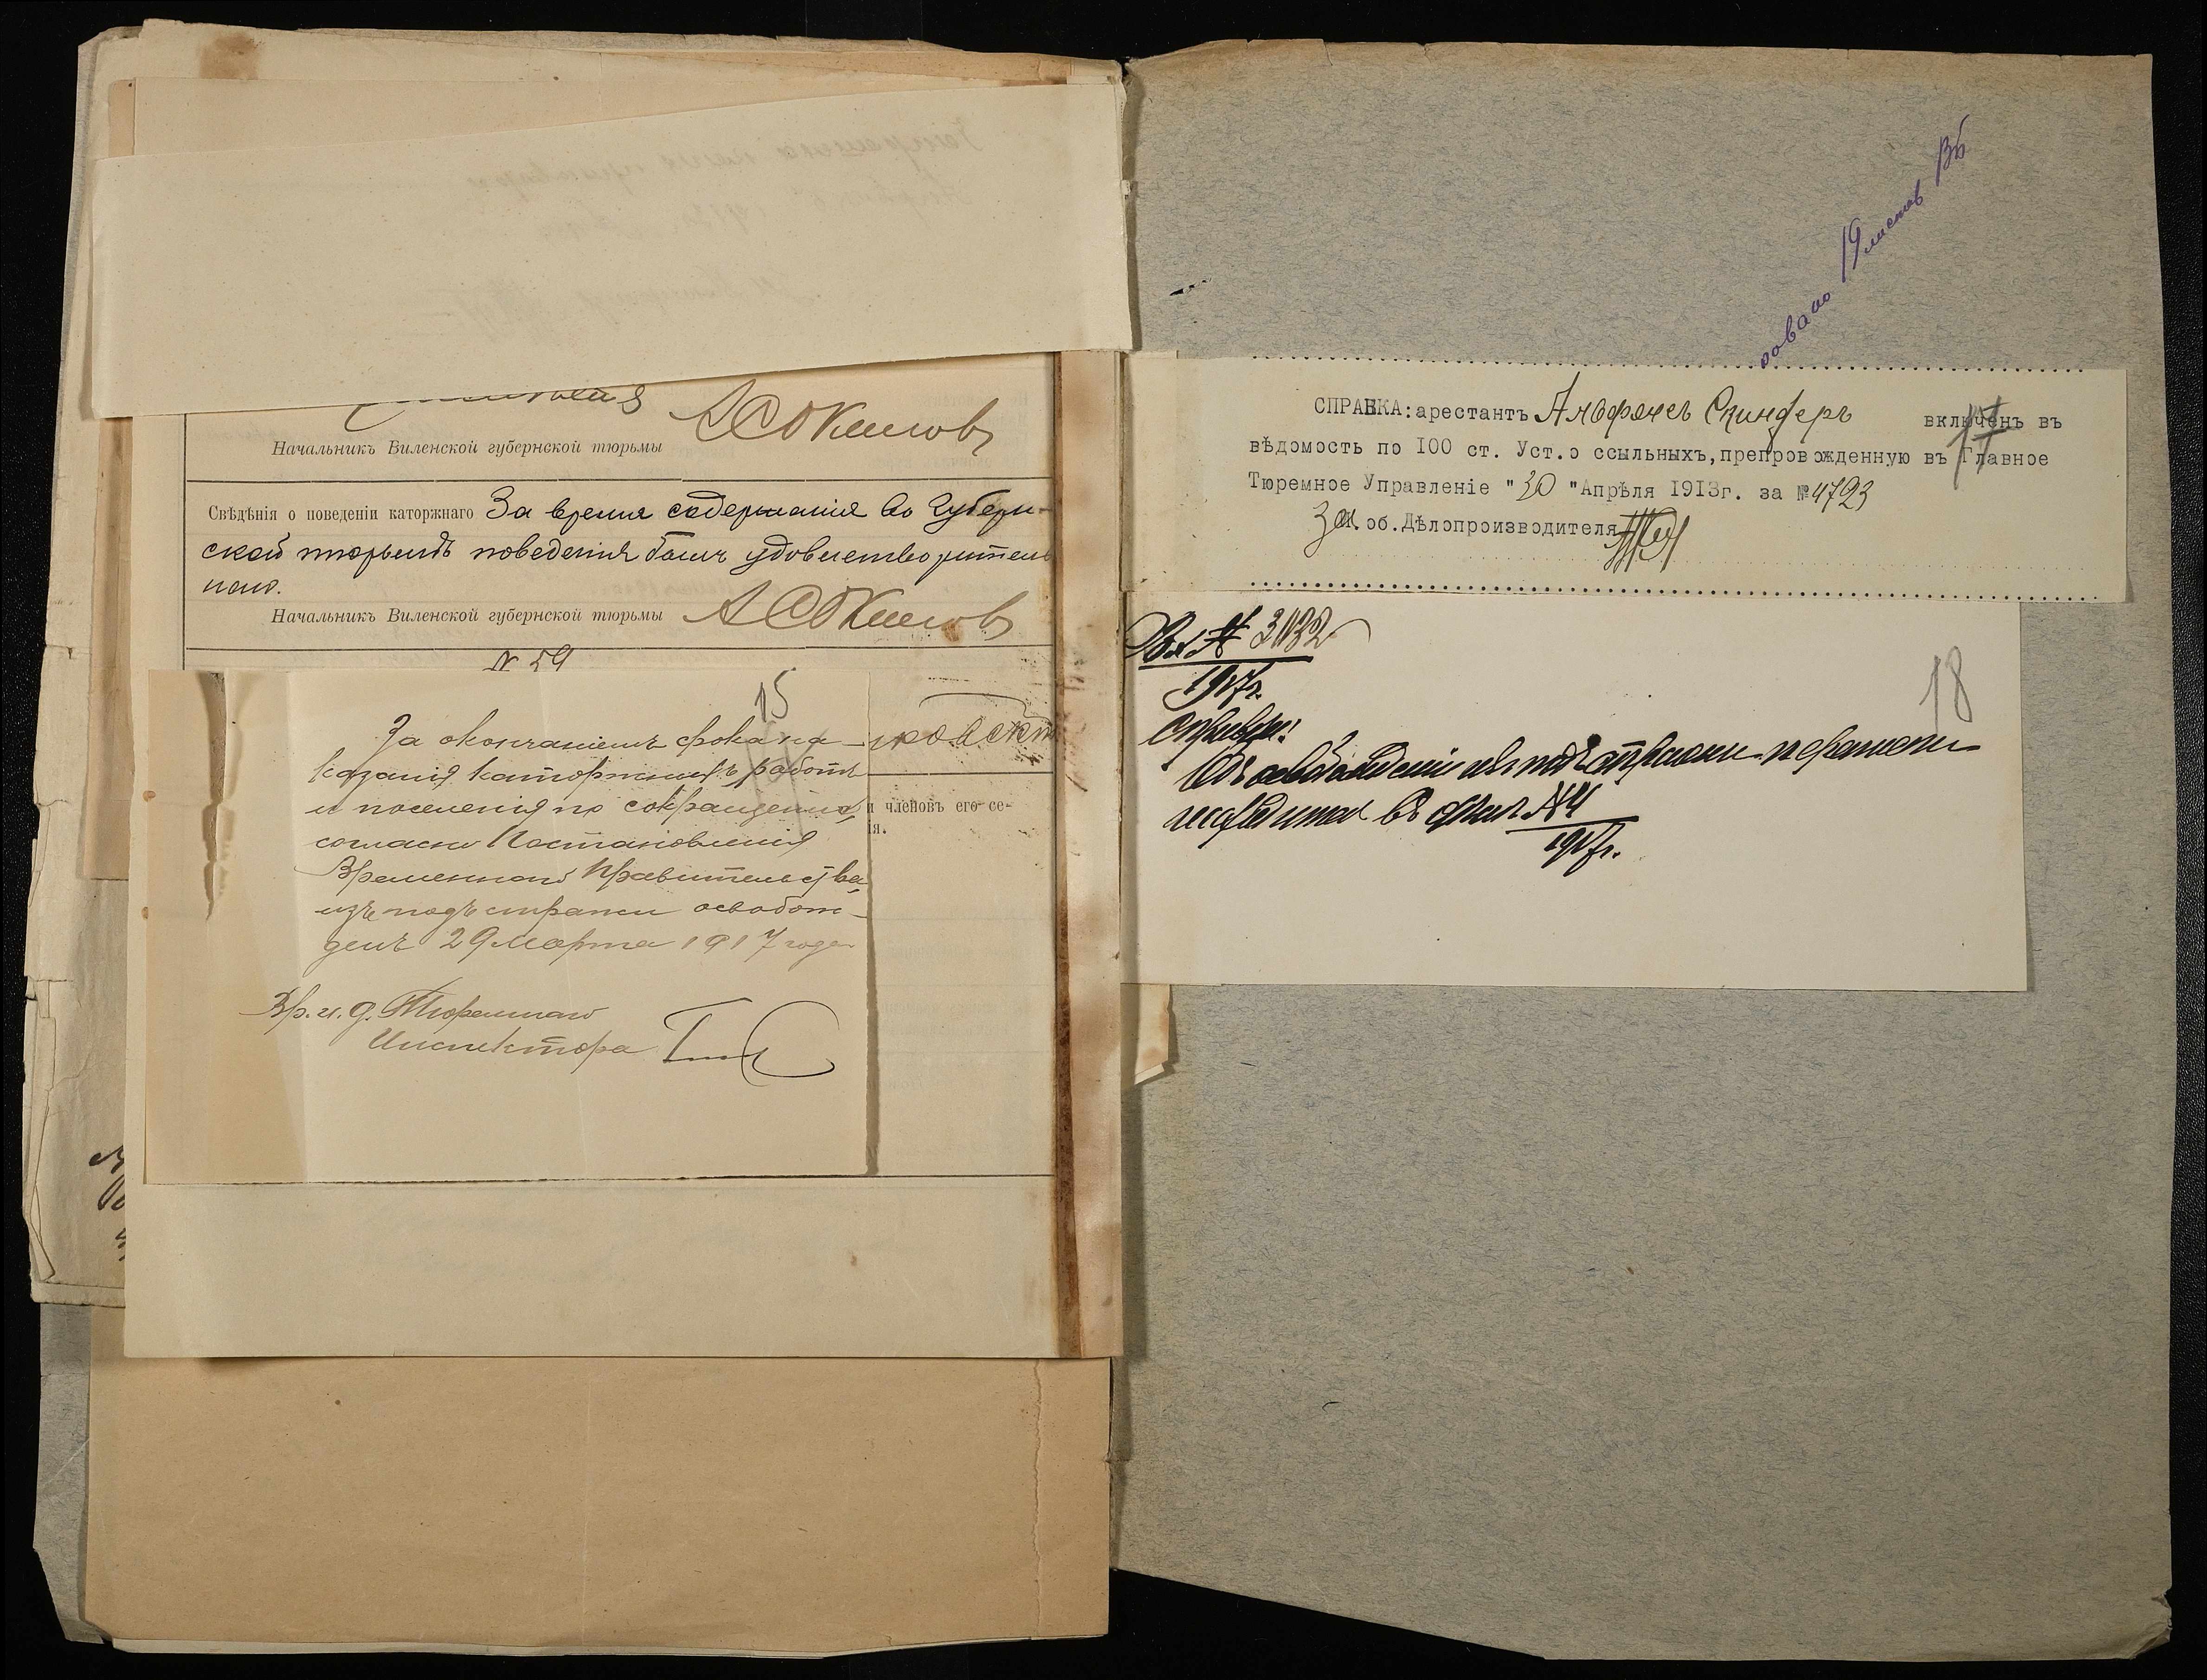 Начальникъ Виленской губернской тюрьмы
Свѣдѣнія о поведеніи каторжнаго За время содержанія во Губерн-
ской тюрьмѣ поведенія былъ удовлетворитель
наго.
Начальникъ Виленской губернской тюрьмы
N 59
15
За окончаніемъ срока на-
казанія каторжныхъ работъ
и поселенія по сокращенію,
согласно Постановленія
Временнаго Правительства,
изъ подъ стражи освобож-
денъ 29 Марта 1917 года
Вр. и. д. Тюремнаго
Инспектора
и членовъ его се-
ія.
19 листовъ
СПРАВКА: арестантъ Альфонсъ Спиндеръ включенъ въ
17
вѣдомость по 100 ст. Уст.о ссыльныхъ, препровожденную въ Главное
Тюремное Управленіе "30 "Апрѣля 1913г. за №4793
За об.Дѣлопроизводителя
Вх № 3132
1917г.
18
Справка:
Объ освобожденіи изъ подъ стражи переписка
находится въ дѣлѣ №4
1917г.